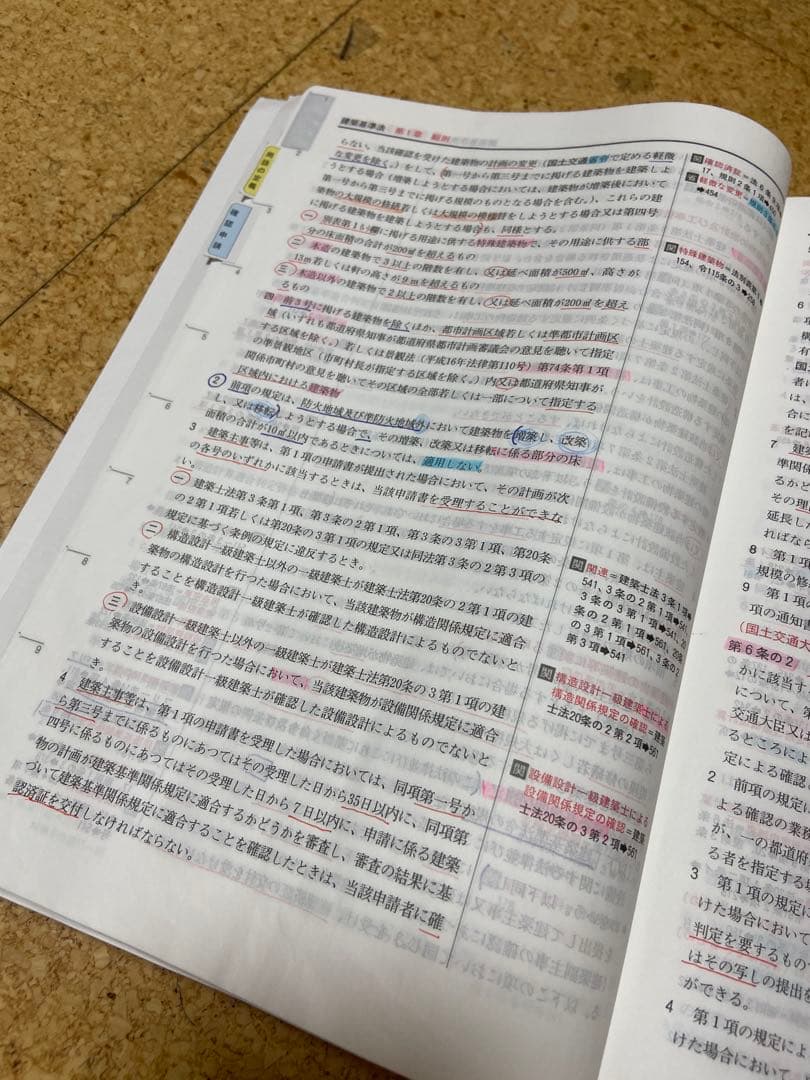 建築基準法 第1章 総則
1
2
用語の定義
3
確認申請
4
5
6
7
8
9
らない。当該確認を受けた建築物の計画の変更(国土交通省令で定める軽微
な変更を除く。)をして、第一号から第三号までに掲げる建築物を建築しよ
うとする場合(増築しようとする場合においては、建築物が増築後において
第一号から第三号までに掲げる規模のものとなる場合を含む。)、これらの建
築物の大規模の修繕若しくは大規模の模様替をしようとする場合又は第四号
に掲げる建築物を建築しようとする場合も、同様とする。
一 別表第1い欄に掲げる用途に供する特殊建築物で、その用途に供する部
分の床面積の合計が200㎡を超えるもの
二 木造の建築物で3以上の階数を有し、又は延べ面積が500㎡、高さが
13m若しくは軒の高さが9mを超えるもの
三 木造以外の建築物で2以上の階数を有し、又は延べ面積が200㎡を超え
るもの
四 前3号に掲げる建築物を除くほか、都市計画区域若しくは準都市計画区
域(いずれも都道府県知事が都道府県都市計画審議会の意見を聴いて指定
する区域を除く。)若しくは景観法(平成16年法律第110号)第74条第1項
の準景観地区(市町村長が指定する区域を除く。)内又は都道府県知事が
関係市町村の意見を聴いてその区域の全部若しくは一部について指定する
区域内における建築物
2 前項の規定は、防火地域及び準防火地域外において建築物を増築し、改築
し、又は移転しようとする場合で、その増築、改築又は移転に係る部分の床
面積の合計が10㎡以内であるときについては、適用しない。
3 建築主事等は、第1項の申請書が提出された場合において、その計画が次
の各号のいずれかに該当するときは、当該申請書を受理することができな
い。
一 建築士法第3条第1項、第3条の2第1項、第3条の3第1項、第20条
の2第1項若しくは第20条の3第1項の規定又は同法第3条の2第3項の
規定に基づく条例の規定に違反するとき。
二 構造設計一級建築士以外の一級建築士が建築士法第20条の2第1項の建
築物の構造設計を行つた場合において、当該建築物が構造関係規定に適合
することを構造設計一級建築士が確認した構造設計によるものでないと
き。
三 設備設計一級建築士以外の一級建築士が建築士法第20条の3第1項の建
築物の設備設計を行つた場合において、当該建築物が設備関係規定に適合
することを設備設計一級建築士が確認した設備設計によるものでないと
き。
4 建築主事等は、第1項の申請書を受理した場合においては、同項第一号か
ら第三号までに係るものにあつてはその受理した日から35日以内に、同項第
四号に係るものにあつてはその受理した日から7日以内に、申請に係る建築
物の計画が建築基準関係規定に適合するかどうかを審査し、審査の結果に基
づいて建築基準関係規定に適合することを確認したときは、当該申請者に確
認済証を交付しなければならない。
関 確認済証=法6条
17、規則2条1項
省 軽微な変更=規則3条
➡454
関 特殊建築物=法別表第1
154、令115条の3➡
関 関連=建築士法3条1項➡
541、3条の2第1項➡561
3条の3第1項➡541、20
条の2第1項➡561、20条
の3第1項➡561、3条の2
第3項➡541
関 構造設計一級建築士による
構造関係規定の確認=建築
士法20条の2第2項➡561
関 設備設計一級建築士による
設備関係規定の確認=建築
士法20条の3第2項➡561
6
7 建築
準関係
るかど
その理
延長し
ればな
8 第1項
規模の修
9 第1項
項の通知書
(国土交通大
第6条の2
かに該当す
について、
交通大臣又は
るところによ
定による確認
2 前項の規定
よる確認の業
が、一の都道府
る者を指定する場
3 第1項の規定に
けた場合において
判定を要するもの
はその写しの提出を
ができる。
4 第1項の規定によ
けた場合において、